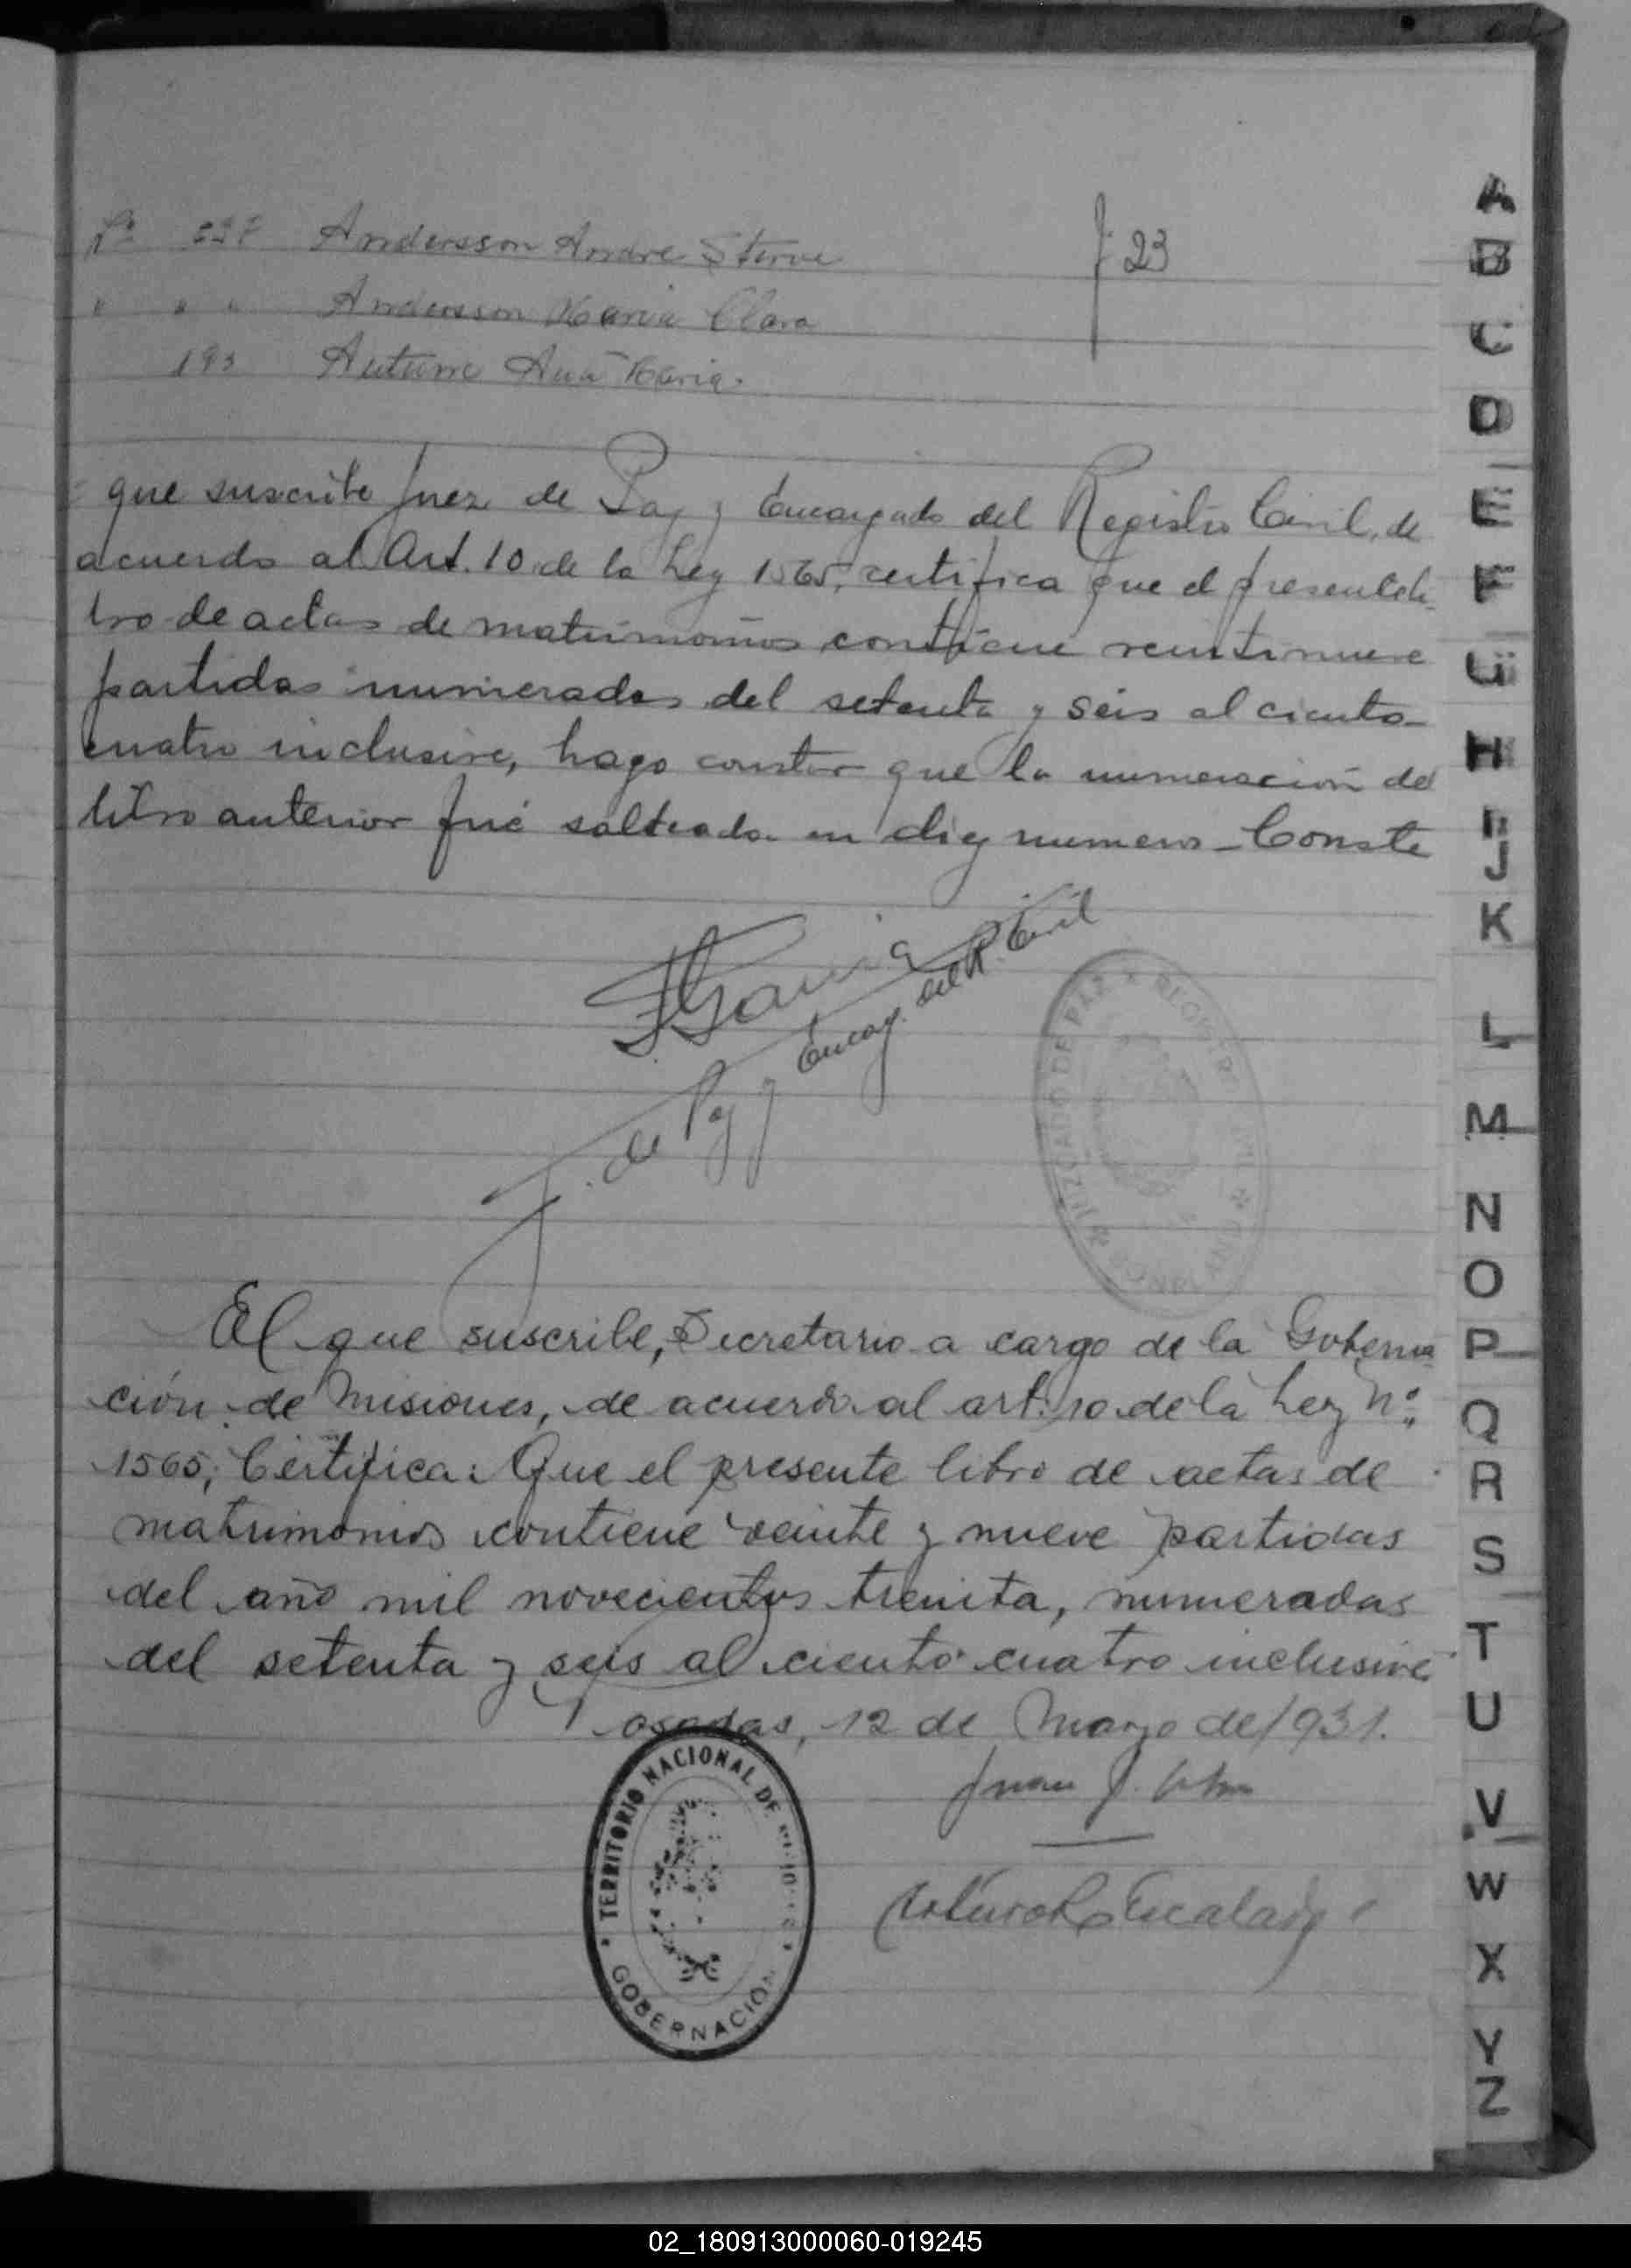 Andersson Andre Sterne
f 23
" " " Andersson Maria Clara
193 Ana Maria
que suscribe Juez de Paz y Encargado del Registro Civil, de
acuerdo al Art. 10 de la Ley 1565, certifica que el presente li-
bro de actas de matrimonios contiene veintinueve
partidas numeradas del setenta y seis al ciento
cuatro inclusive, hago constar que la numeración del
libro anterior fué salteada en diez numeros - Conste
F. Garcia
J. de Paz y Encag. del R. Civil
JUZGADO DE PAZ * REGISTRO CIVIL * BONPLAND *
El que suscribe, Secretario a cargo de la Goberna
ción de Misiones, de acuerdo al art. 10 de la Ley Nº
1565, Certifica: Que el presente libro de actas de
matrimonios contiene veinte y nueve partidas
del año mil novecientos treinta, numeradas
del setenta y seis al ciento cuatro inclusive
Posadas, 12 de Marzo de 1931.
Juan J.
TERRITORIO NACIONAL DE MISIONES
GOBERNACIÓN
Arturo Escalada
A
B
C
D
E
F
G
H
I
J
K
L
M
N
O
P
Q
R
S
T
U
V
W
X
Y
Z
02_180913000060-019245